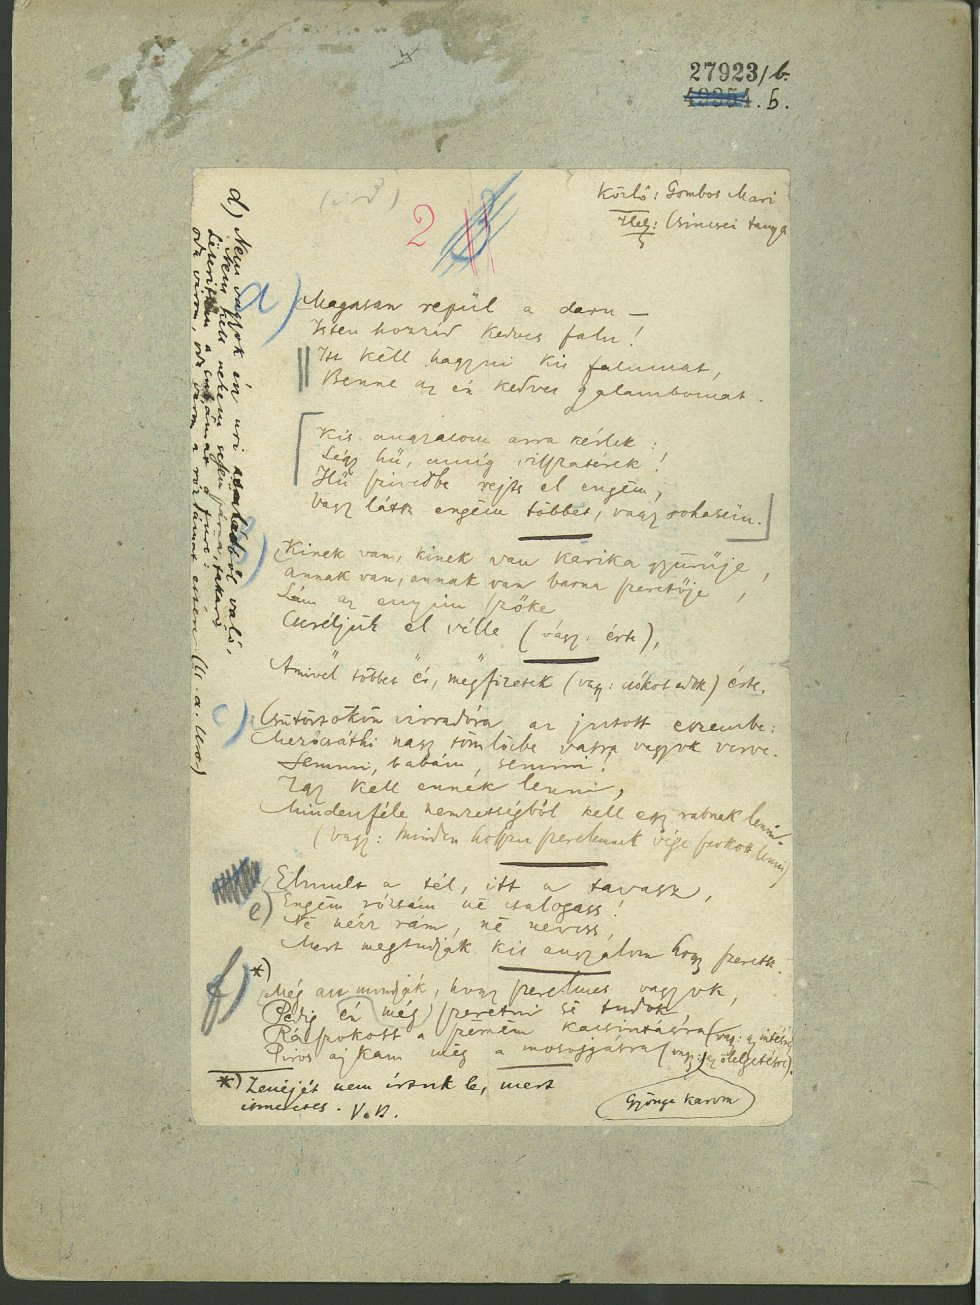 27923/b.
49354.b.
Közlő: Gombos Mari
Hely: Csincsei tanya
2
a) Magasan repül a daru —
Isten hozzád kedves falu!
Itt kell hagyni kis falumat,
Benne az én kedves galambomat.
Kis angyalom arra kérlek:
Légy hű, amíg visszatérek!
Hű szivedbe rejts el engem,
Vagy látsz engem többet, vagy sohasem.
b) Kinek van, kinek van karika gyűrűje,
Annak van, annak van barna szeretője,
Lám az enyim szőke
Cseréljük el vélle (vagy: érte),
Amivel többet ér, megfizetek (vagy: csókot adok) érte.
c) Csütörtökön virradóra az jutott eszembe:
Mezőcsáthi nagy tömlöcbe vasra vagyok verve.
Semmi, babám, semmi!
Igy kell ennek lenni,
Mindenféle nemzetségből kell egy rabnak lenni.
(vagy: Minden hosszu szerelemnek vége szokott lenni)
e) Elmult a tél, itt a tavasz,
Engem rózsám ne csalogass!
Né nézz rám, né nevess,
Mert megtudják kis angyalom hogy szeretsz.
f) *) Még azt mondják, hogy szerelmes vagyok,
Pedig én még szeretni se tudok,
Rászokott a szemem kacsintásra (vagy: az intésre)
Piros ajkam még a mosolygásra (vagy: az ölelgetésre).
Gyönge karom
*) Zenéjét nem írtuk le, mert
ismeretes. V.B.
d) Nem vagyok én uri családból való,
Nem kell nekem selyem párna, takaró
Leterítem a subámat a fűre!
oda várom, oda várom a rózsámat estére.